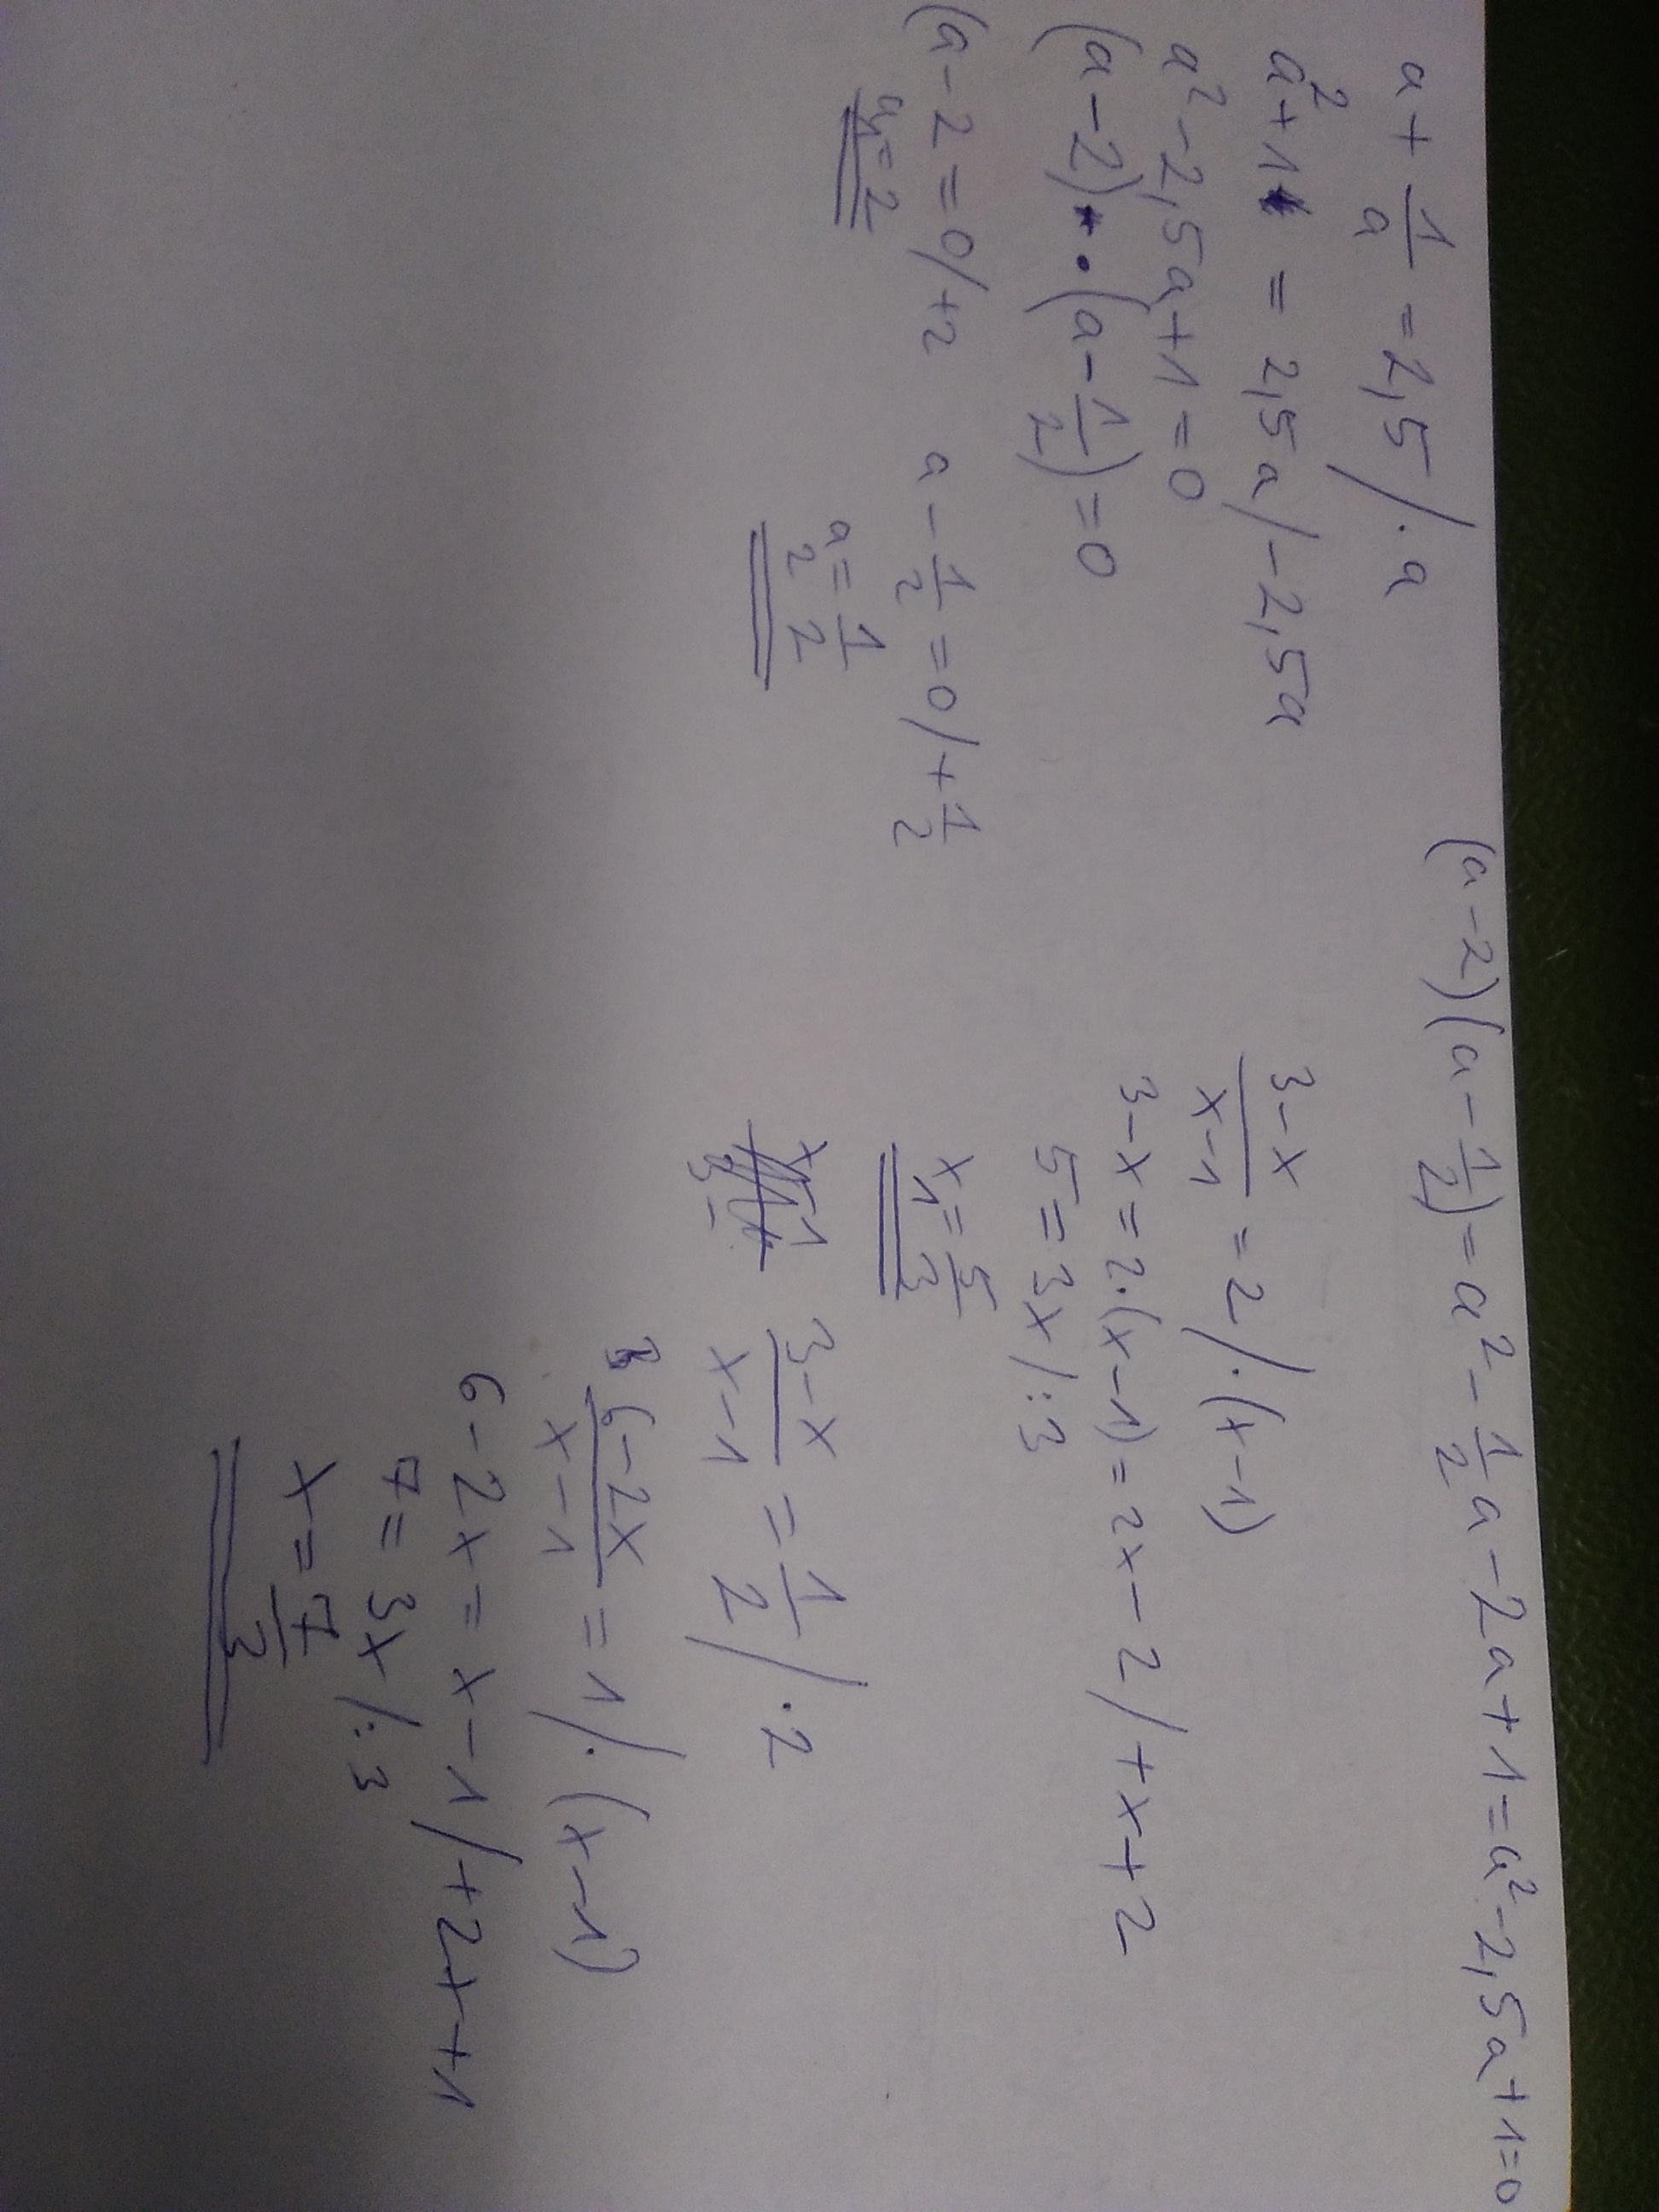 a + 1/a = 2,5 /· a
a² + 1 = 2,5a / -2,5a
a² - 2,5a + 1 = 0
(a - 2) · (a - 1/2) = 0
(a - 2 = 0 / +2    a - 1/2 = 0 / + 1/2
a₁ = 2    a₂ = 1/2
(a - 2)(a - 1/2) = a² - 1/2 a - 2a + 1 = a² - 2,5a + 1 = 0
(3 - x)/(x - 1) = 2 /· (x - 1)
3 - x = 2·(x - 1) = 2x - 2 / + x + 2
5 = 3x /: 3
x₁ = 5/3
(3 - x)/(x - 1) = 1/2 /· 2
(6 - 2x)/(x - 1) = 1 /· (x - 1)
6 - 2x = x - 1 / + 2x + 1
7 = 3x /: 3
x = 7/3